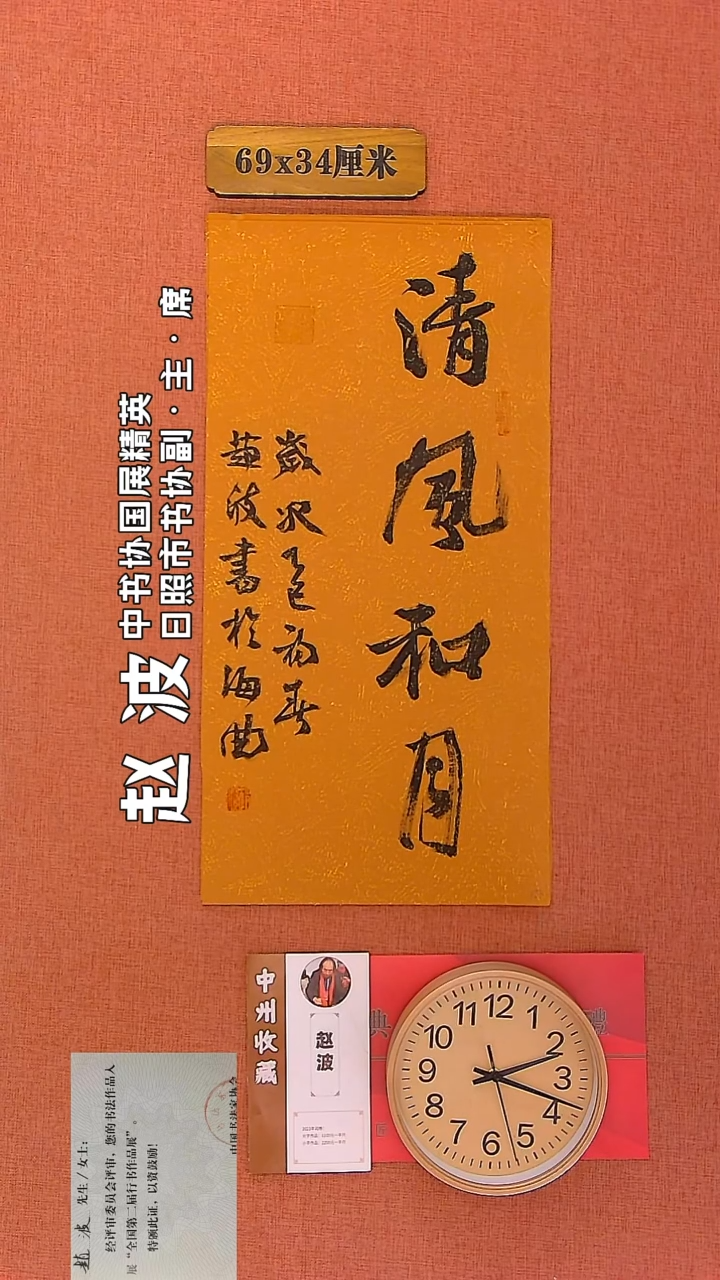 69x34厘米
清風和月
歲次乙巳初春
趙波書於海曲
赵波
中书协国展精英
日照市书协副·主·席
中生女藏
赵波
趙波 先生/女士:
经评审委员会评审，您的书法作品入
展“全国第二届行书作品展”。
特颁此证，以资鼓励!
中国书法家协会
典
禮
12
1
2
3
4
5
6
7
8
9
10
11